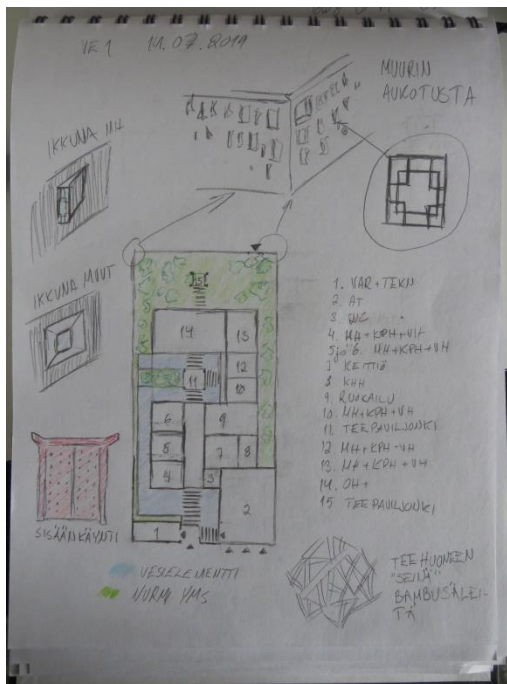 VE 1 14.07.2019
MUURIN
AUKOTUSTA
IKKUNA MH
IKKUNA MUUT
SISÄÄNKÄYNTI
15
14
13
12
11
10
6
9
5
7
8
4
3
2
1
1. VAR+TEKN
2. AT
4. MH+KPH+VH
5 ja 6. MH+KPH+VH
KEITTIÖ
KHH
9. RUOKAILU
10. MH+KPH+VH
11. TEEPAVILJONKI
12 MH+KPH+VH
13. MH+KPH+VH
14. OH+
15 TEEPAVILJONKI
VESIELEMENTTI
NURMI YMS
TEEHUONEEN
"SEINÄ"
BAMBUSÄLEI-
TÄ